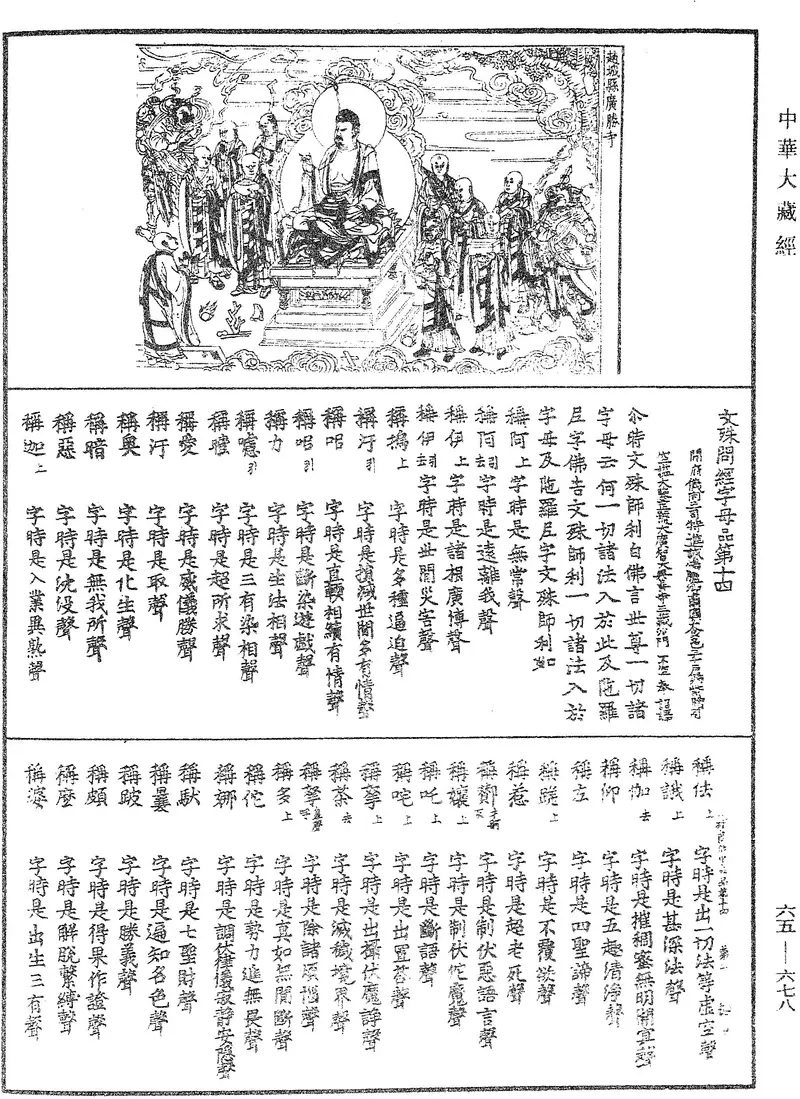 中華大藏經
趙城縣廣勝寺
文殊問經字母品第十四
開府儀同三司特進試鴻臚卿肅國公食邑三千戶
尒時文殊師利白佛言世尊一切諸
字母云何一切諸法入於此及陁羅
尼字佛告文殊師利一切諸法入於
字母及陁羅尼字文殊師利如
稱阿上字時是無常聲
稱阿去引字時是遠離我聲
稱伊上字時是諸根廣博聲
稱伊去引字時是世間災害聲
稱塢上字時是多種逼迫聲
稱汙引字時是損減世間多有情聲
稱呂字時是直耎相續有情聲
稱呂引字時是斷染遊戲聲
稱力字時是生法相聲
稱嚧引字時是三有染相聲
稱曀字時是起所求聲
稱愛字時是威儀勝聲
稱汙字時是取聲
稱奧字時是化生聲
稱暗字時是無我所聲
稱惡字時是沈沒聲
稱迦上字時是入業異熟聲
稱佉上字時是出一切法等虛空聲
稱誐上字時是甚深法聲
稱伽去字時是摧稠密無明闇冥聲
稱仰字時是五趣清淨聲
稱左字時是四聖諦聲
稱磋上字時是不覆欲聲
稱惹字時是超老死聲
稱酇字時是制伏惡語言聲
稱孃上字時是制伏他魔聲
稱吒上字時是斷語聲
稱咤上字時是出置荅聲
稱拏上字時是出攝伏魔諍聲
稱荼去字時是滅穢境界聲
稱拏字時是除諸煩惱聲
稱多上字時是真如無間斷聲
稱佗字時是勢力進無畏聲
稱娜字時是調伏律儀寂靜安隱聲
稱馱字時是七聖財聲
稱曩字時是遍知名色聲
稱跛字時是勝義聲
稱頗字時是得果作證聲
稱麼字時是解脫繫縛聲
稱婆字時是出生三有聲
六五—六七八